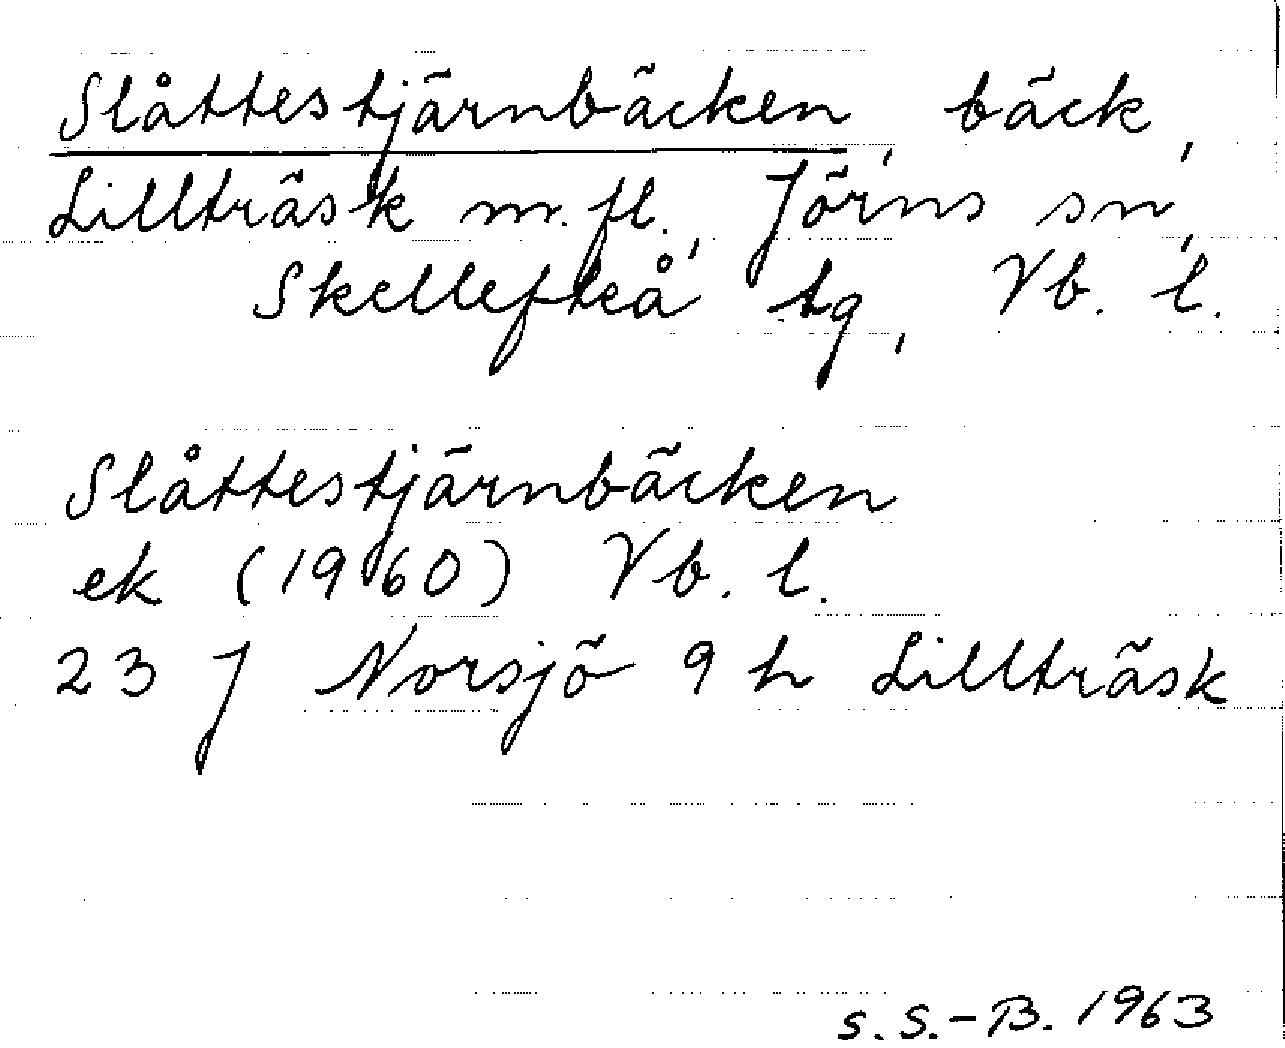 Slåttestjärnbäcken, bäck,
Lillträsk m.fl., Jörns sn,
Skellefteå tg, Vb. l.
Slåttestjärnbäcken
ek (1960) Vb. l.
23 J Norsjö 9 h Lillträsk
S. S.-B. 1963